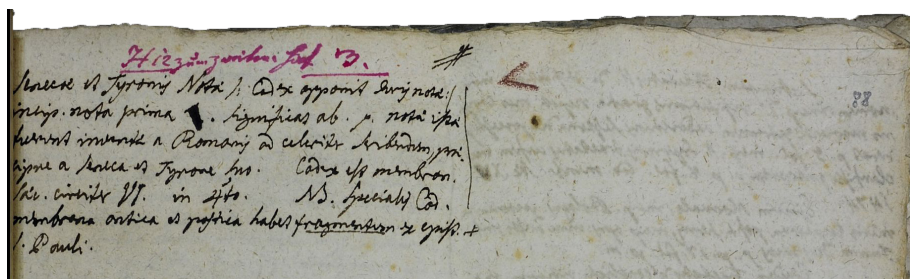 Hiezu zum zweiten Heft 3.
Senecæ et Tyronis Notæ /: Codex apponit Scripnotæ :/
incip. nota prima . significas ab. p. notæ istæ
fuerunt inventæ a Romanis ad celeriter scribendum, præ
cipue a Seneca et Tyrone suo. Codex est membran.
Sæc. circiter in 4to. NB. Specialis Cod.
membrana antica et postica habet fragmentum ex epist.
S. Pauli.
88